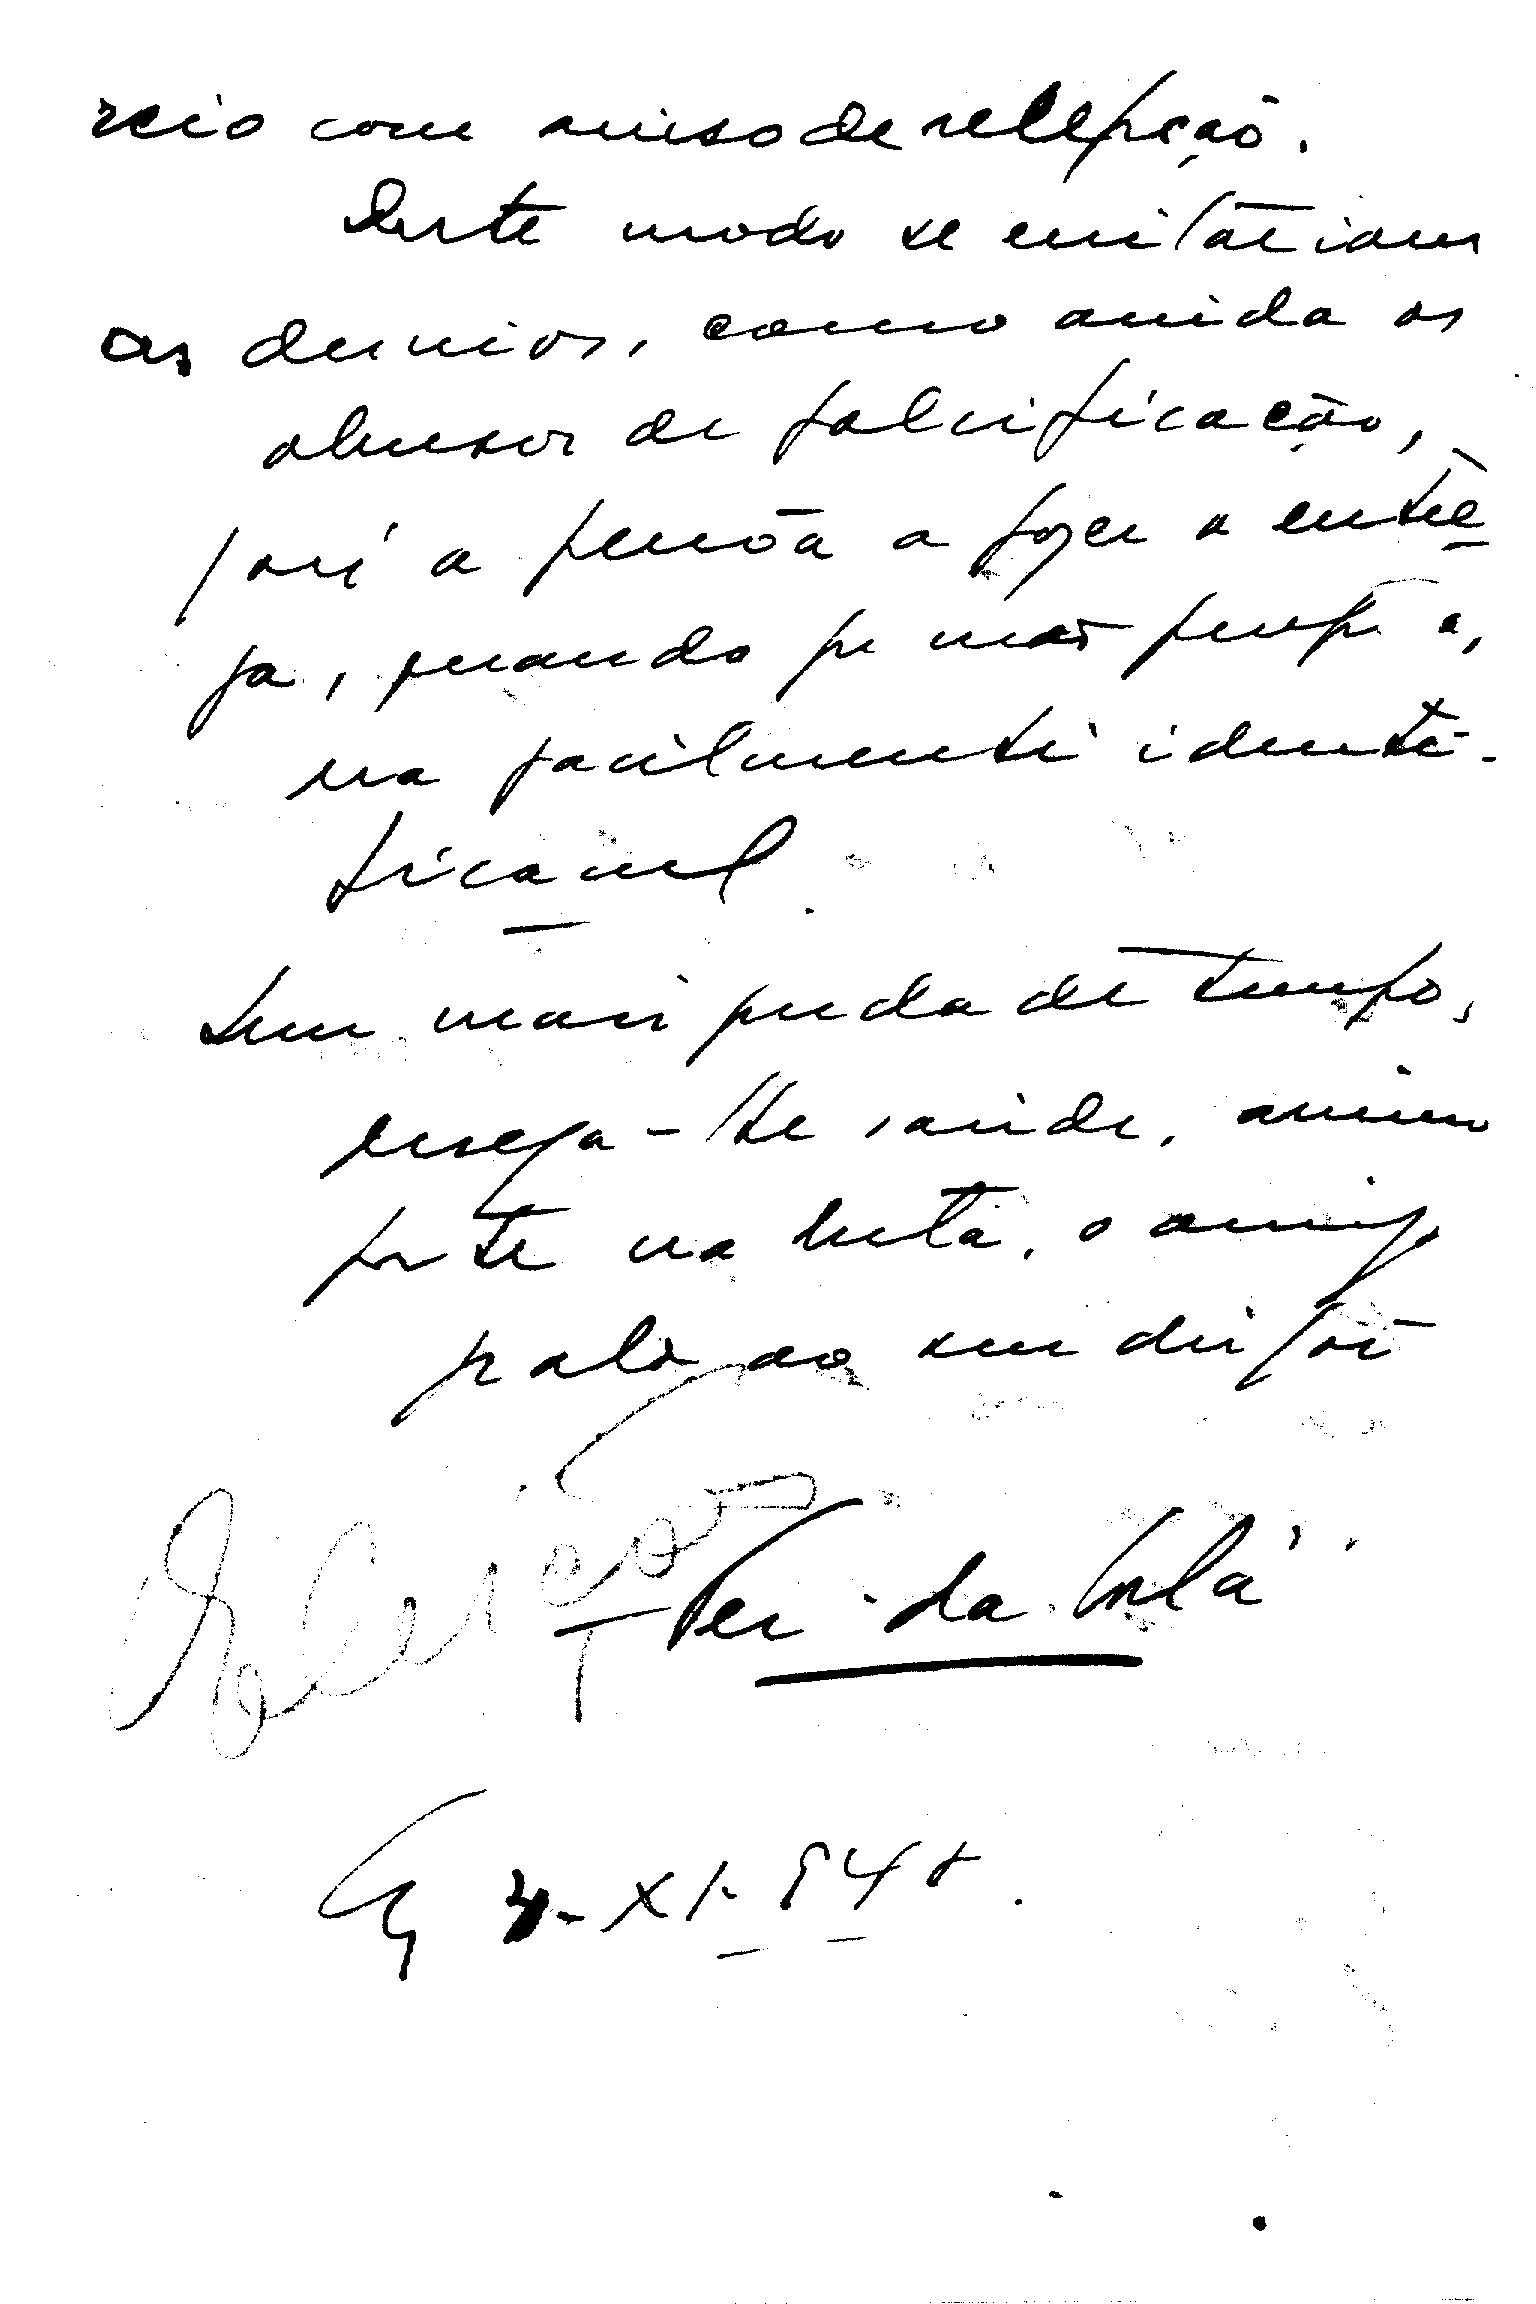 reio com aviso de recepção.
Deste modo se evitariam
os desvios, como ainda os
abusos de falsificação,
pois a pessoa a fazer a entre
ga, quando se não propria,
era facilmente identi-
ficavel.
Sem mais perda de tempo,
deseja-lhe saude, animo
forte na luta, o amigo
grato ao seu dispor
da
4-XI-94